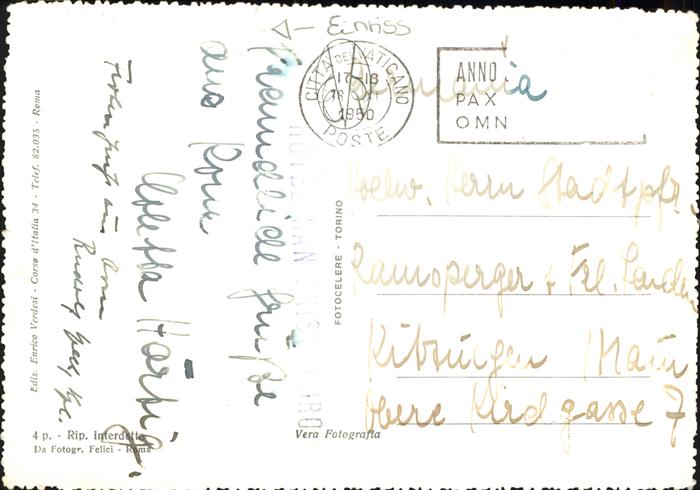 Einriss
CITTÀ DEL VATICANO
17-18
1950
POSTE
ANNO
PAX
OMN
Germania
Hochw. Herrn Stadtpfr.
Ramsperger + Frl.
Kitzingen / Main
Obere Kirchgasse 7
Freundliche Grüße
aus Rom
Härtig.
aus Rom
HOTEL SAN
FOTOCELERE - TORINO
Ediz. Enrico Verdesi - Corso d'Italia 34 - Telef. 82.035 - Roma
4 p. - Rip. interdetta
Da Fotogr. Felici - Roma
Vera Fotografia